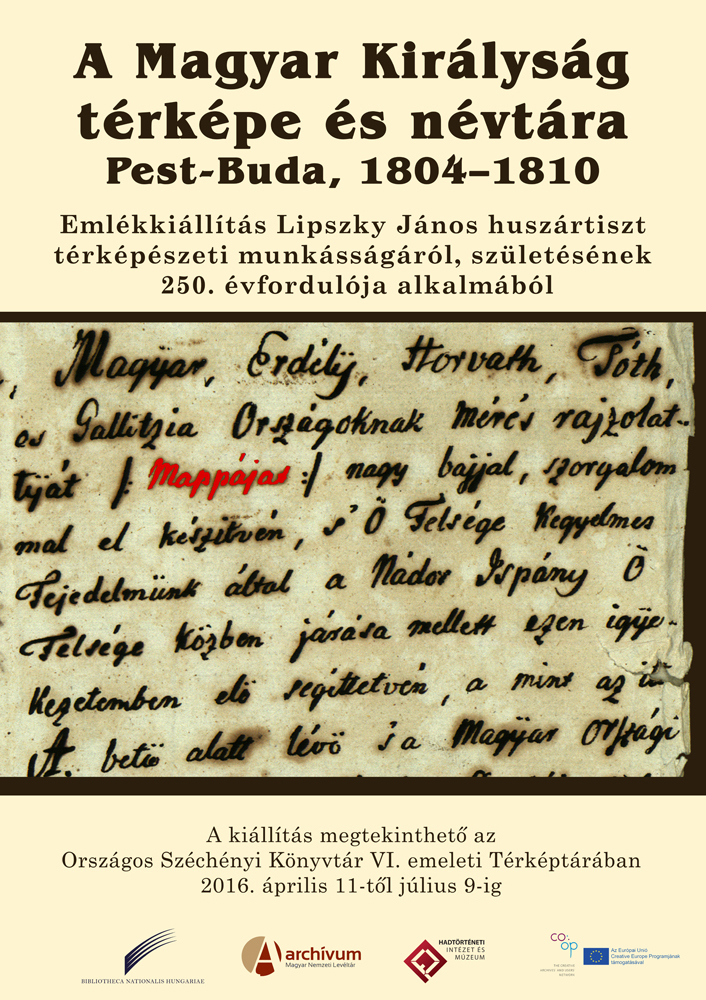 A Magyar Királyság
térképe és névtára
Pest-Buda, 1804–1810
Emlékkiállítás Lipszky János huszártiszt
térképészeti munkásságáról, születésének
250. évfordulója alkalmából
Magÿar, Erdélÿ, Horvath, Tóth,
os Gallitzia Országoknak mérés rajzolat-
tÿát /: Mappájas :/ nagy bajjal, szorgalom
mal el készitvén, s' Ö Felsége Kegyelmes
Fejedelmünk által a Nádor Ispány Ö
Felsége közben járása mellett ezen igÿe-
kezetemben elö segittetvén, a mint az
A. betü alatt lévö 's a Magÿar Országi
A kiállítás megtekinthető az
Országos Széchényi Könyvtár VI. emeleti Térképtárában
2016. április 11-től július 9-ig
BIBLIOTHECA NATIONALIS HUNGARIAE
archívum
Magyar Nemzeti Levéltár
HADTÖRTÉNETI
INTÉZET ÉS
MÚZEUM
co:op
THE CREATIVE
ARCHIVES' AND USERS'
NETWORK
Az Európai Unió
Creative Europe Programjának
támogatásával